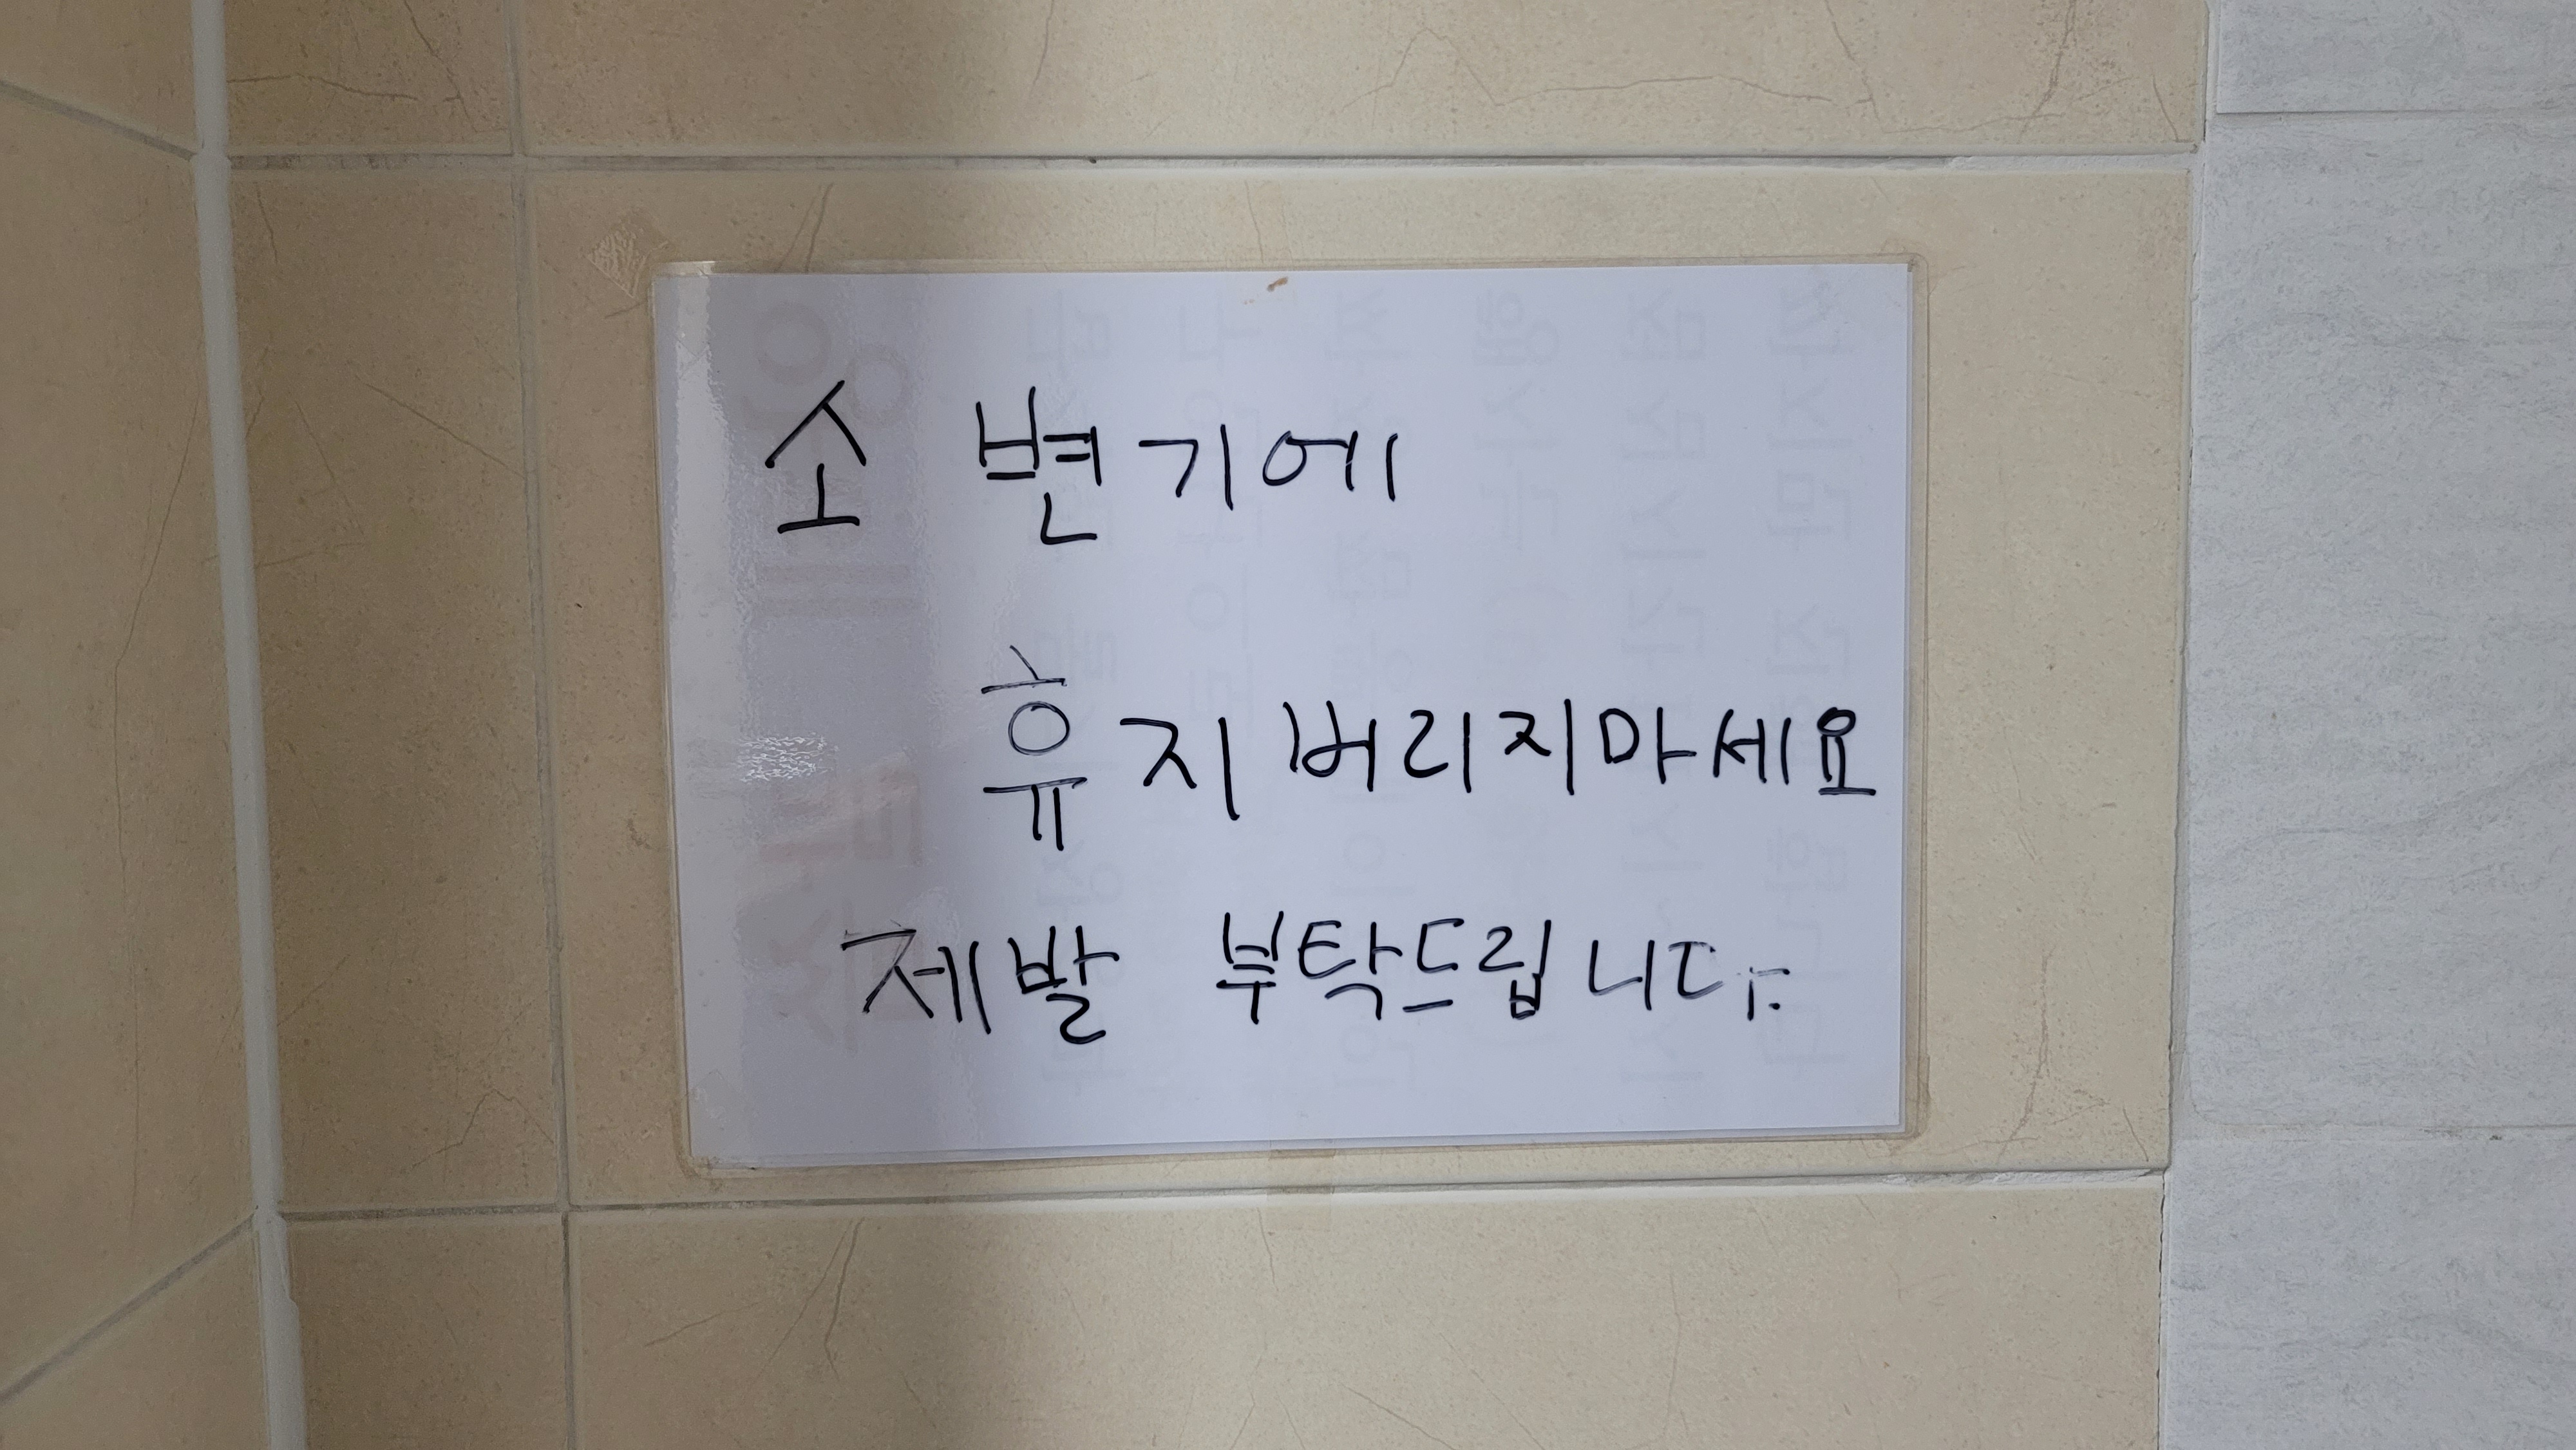 소 변기에
휴지버리지마세요
제발 부탁드립니다.